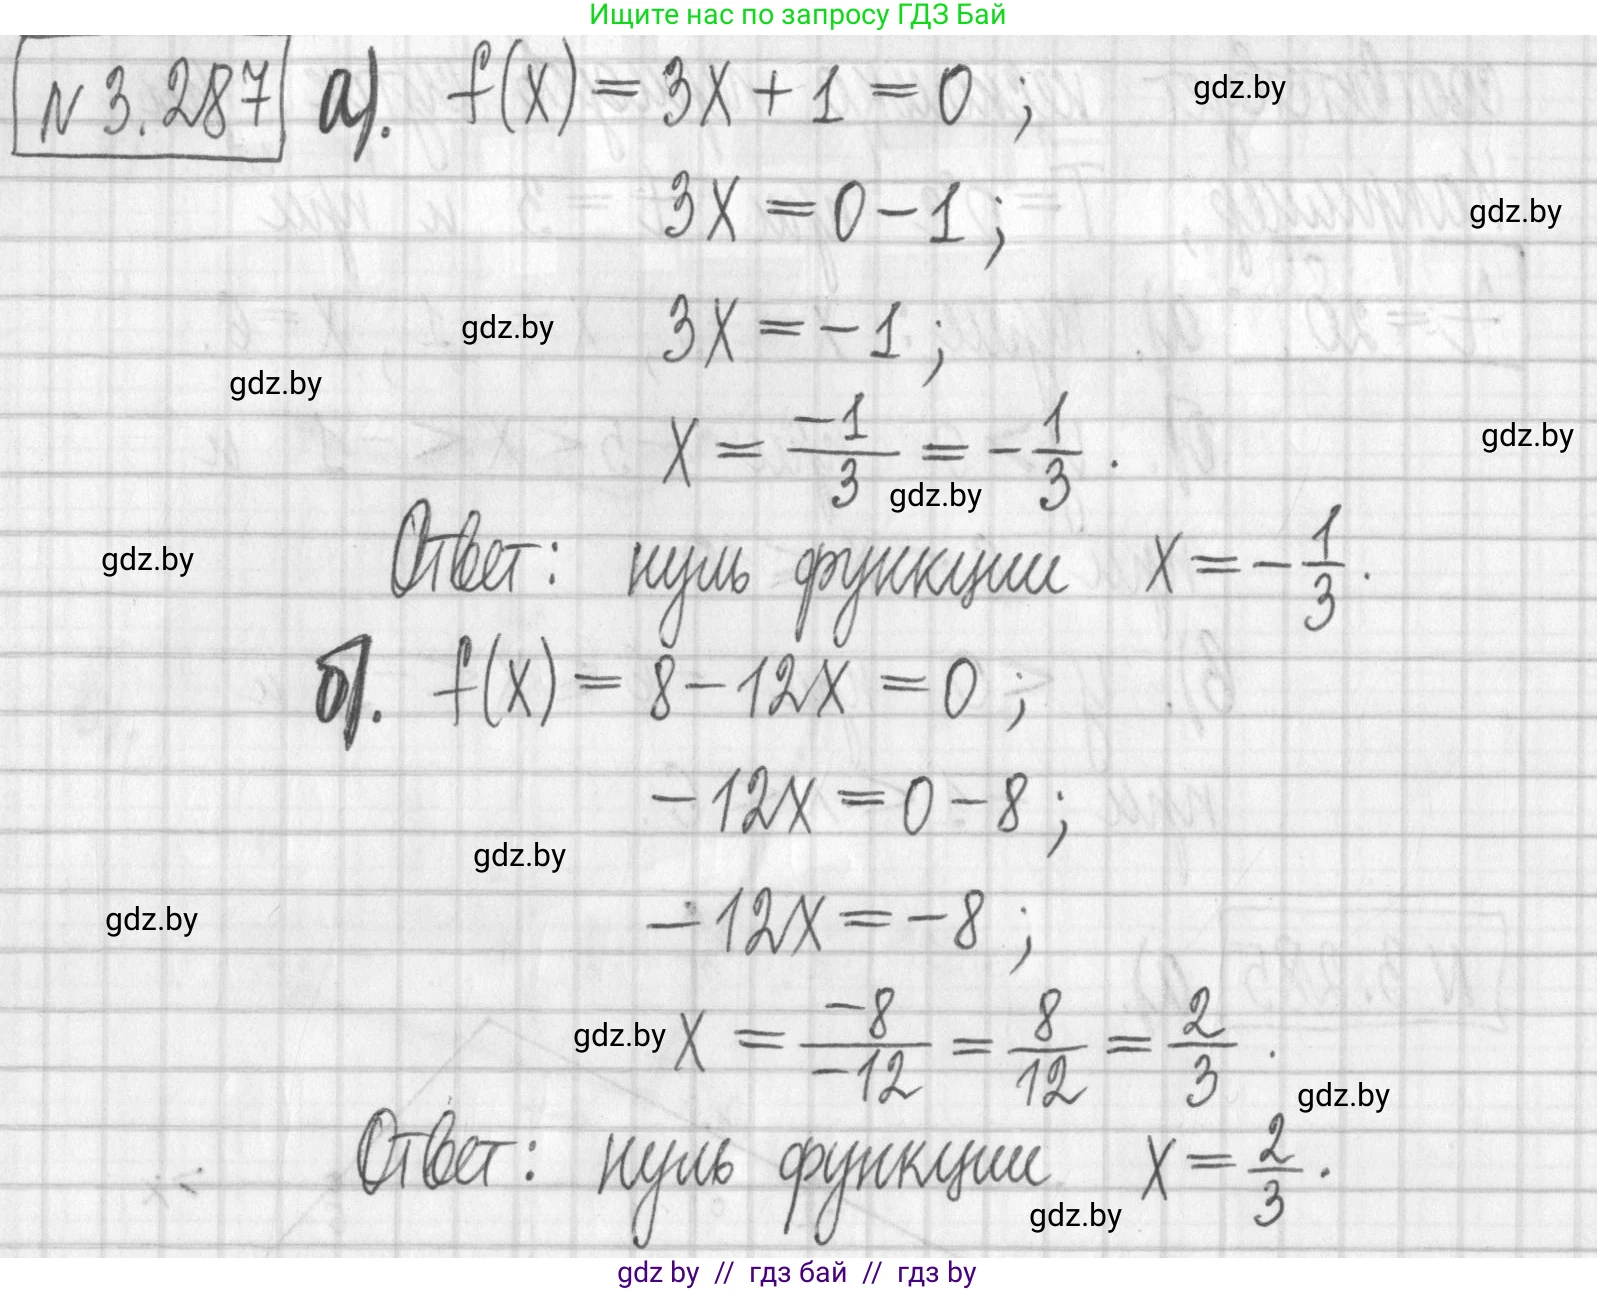 Ищите нас по запросу ГДЗ Бай
№ 3.287 а). f(x) = 3x + 1 = 0 ;
gdz.by
3x = 0 - 1 ;
gdz.by
3x = - 1 ;
gdz.by
gdz.by
x = -1/3 = - 1/3 .
gdz.by
gdz.by
Ответ: нуль функции x = - 1/3 .
gdz.by
б). f(x) = 8 - 12x = 0 ;
- 12x = 0 - 8 ;
gdz.by
- 12x = - 8 ;
gdz.by
gdz.by
x = -8/-12 = 8/12 = 2/3 .
gdz.by
Ответ: нуль функции x = 2/3 .
gdz.by
gdz by // гдз бай // гдз by